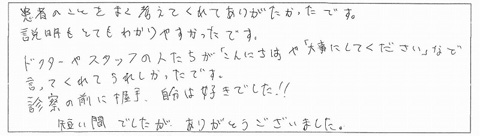 患者のことをよく考えてくれてありがたかったです。
説明もとてもわかりやすかったです。
ドクターやスタッフの人たちが「こんにちは」や「大事にしてください」などで
言ってくれてうれしかったです。
診察の前に握手、自分は好きでした!!
短い間でしたが、ありがとうございました。